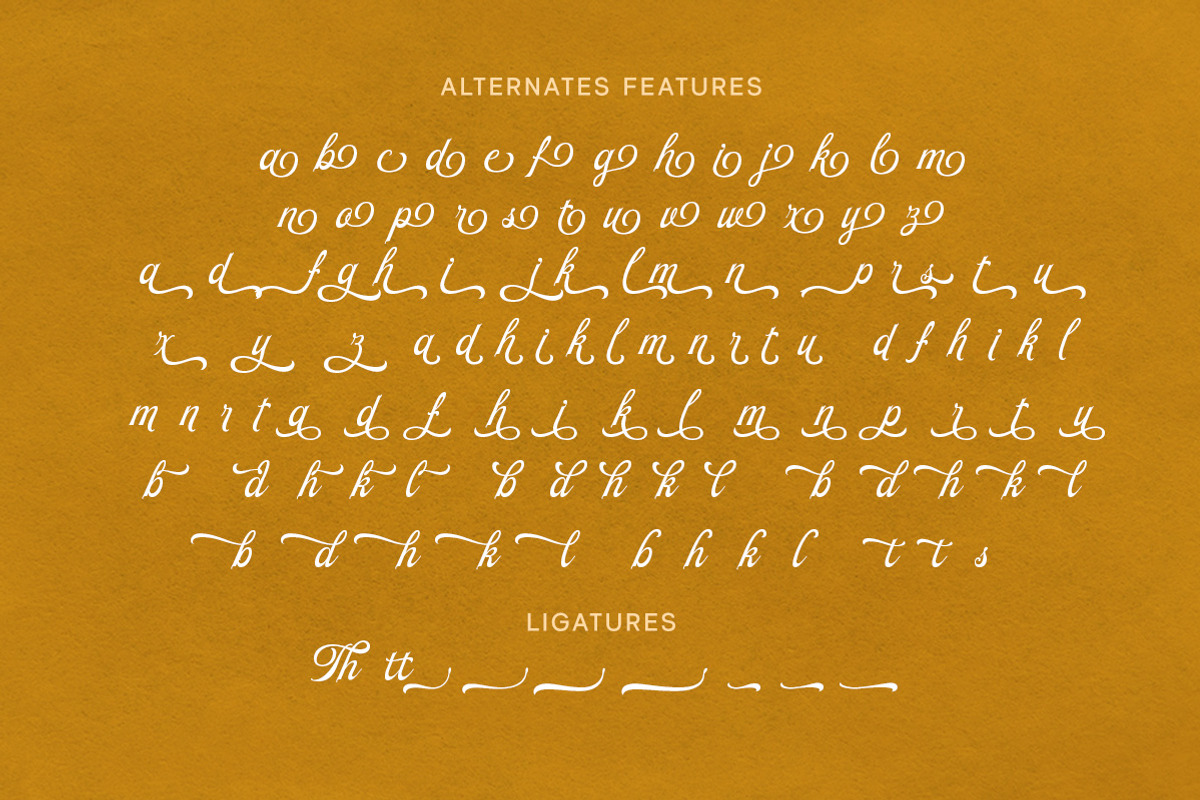 ALTERNATES FEATURES
a b c d e f g h i j k l m
n o p r s t u v w x y z
a d f g h i j k l m n p r s t u
x y z a d h i k l m n r t u d f h i k l
m n r t a d f h i k l m n p r t u
b d h k l b d h k l b d h k l
b d h k l b h k l t t s
LIGATURES
Th tt